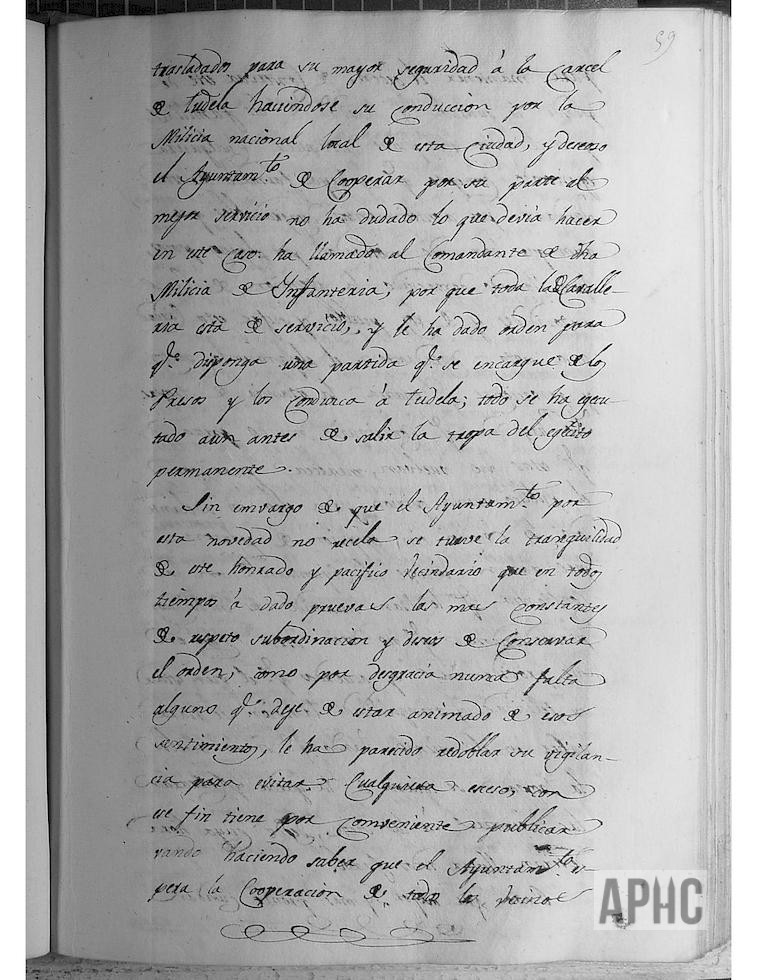 59
trasladados para su mayor seguridad á la Carcel
de Tudela haciendose su conduccion por la
Milicia nacional local de esta Ciudad, y deseoso
el Ayuntam.to de Cooperar por su parte al
mejor servicio no ha dudado lo que devia hacer
en este caso: ha llamado al Comandante de dha
Milicia de Infanteria, por que toda la Cavalle-
ria esta de servicio, y le ha dado orden para
q.e disponga una partida q.e se encargue de los
Presos y los conduzca á Tudela; todo se ha egecu-
tado aun antes de salir la tropa del egercito
permanente.
Sin emvargo de que el Ayuntam.to por
esta novedad no recela se turve la tranquilidad
de este honrado y pacifico vecindario que en todos
tiempos á dado pruevas las mas constantes
de respeto subordinacion y deseos de Conservar
el orden, como por desgracia nunca falta
alguno q.e deje de estar animado de esos
sentimientos, le ha parecido redoblar su vigilan-
cia para evitar Cualquiera exceso; con
ese fin tiene por conveniente publicar
vando haciendo saber que el Ayuntam.to es-
pera la Cooperacion de todos los vecinos
APHC